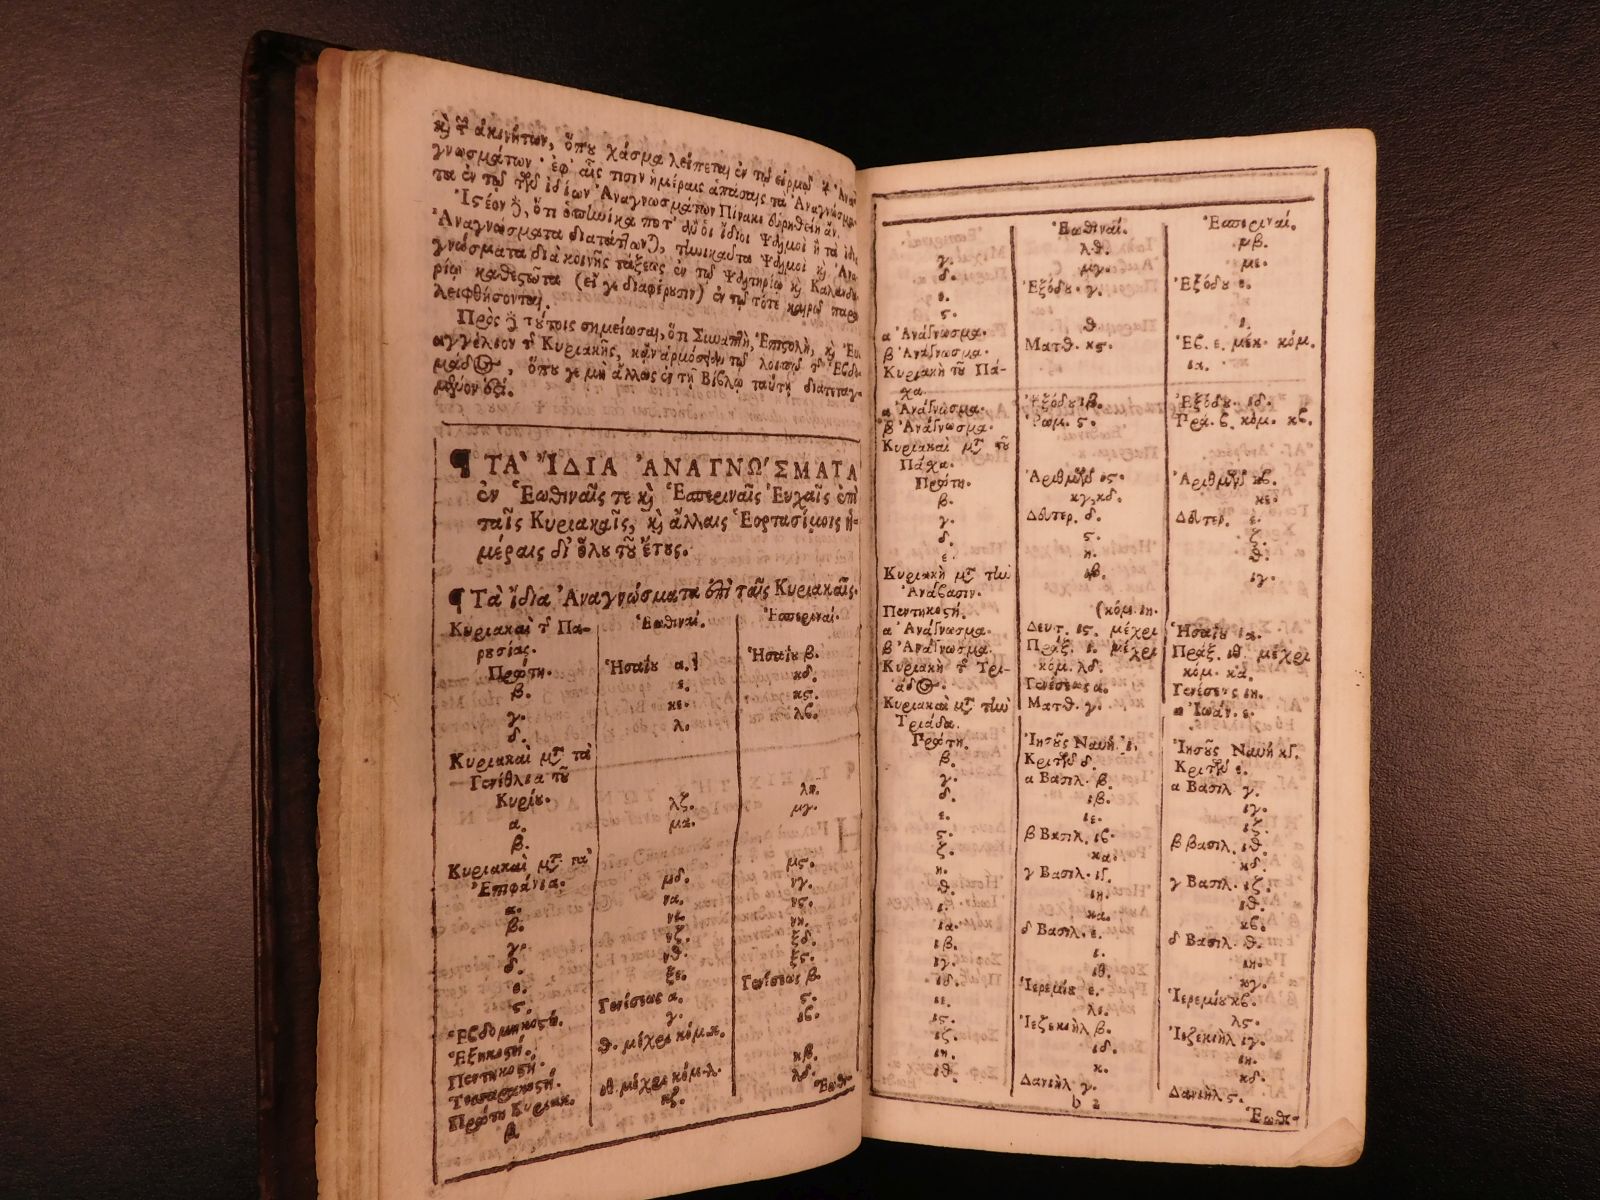 κỳ τ̃ ἀκινήτων, ὅπου χάσμα λείπεται ἐν τῷ εἱρμῷ τ̃ Ἀνα-
γνωσμάτων· ἐφ' αἷς τισιν ἡμέραις ἁπάσαις τὰ Ἀναγνώσμα-
τα ἐν τῷ τῶν ἰδίων Ἀναγνωσμάτων Πίνακι εὑρηθείη ἄν.
Ἰστέον ὅτι ὁπηνίκα ποτ' οἱ ἴδιοι Ψαλμοὶ ἢ τὰ ἰδι
Ἀναγνώσματα διατάτ]ων], τηνικαῦτα Ψαλμοὶ κỳ Ἀνα-
γνώσματα διὰ κοινῆς τάξεως ἐν τῷ Ψαλτηρίῳ κỳ Καλανδα
ρίῳ καθεστῶτα (εἴ γε διαφέρουσιν) ἐν τῷ τότε καιρῷ παρα
λειφθήσονται.
Πρὸς τούτοις σημείωσαι, ὅτι Συναπτὴ, Ἐπιστολὴ, κỳ Εὐ-
αγγέλιον τ̃ Κυριακῆς, τῷ λοιπῷ τ̃ Ἑβδο-
μάδος, ὅπου γε μὴ ἄλλως ἐν τῇ Βίβλῳ ταύτῃ διατεταγ-
μένον ἐστί.
¶ ΤᾺ ἼΔΙΑ ἈΝΑΓΝΩ'ΣΜΑΤΑ
ἐν Ἑωθιναῖς τε κỳ Ἑσπεριναῖς Εὐχαῖς ἐπὶ
ταῖς Κυριακαῖς, κỳ ἄλλαις Ἑορτασίμοις ἡ-
μέραις δι' ὅλου τοῦ ἔτους.
¶ Τὰ ἴδια Ἀναγνώσματα ἐπὶ ταῖς Κυριακαῖς.
Κυριακαὶ τ̃ Πα- Ἑωθιναί. Ἑσπεριναί.
ρουσίας.
Πρώτη. Ἡσαΐου α. Ἡσαΐου β.
β. ε. κδ.
γ. κε. κς.
δ. λ. λβ.
Κυριακαὶ μτ̃ τὰ
Γενέθλια τοῦ
Κυρίου.
α. λζ. λη.
β. μα. μγ.
Κυριακαὶ μτ̃ τὰ
Ἐπιφάνια.
α. μδ. μς.
β. να. νγ.
γ. νε. νς.
δ. νζ. νη.
ε. νθ. ξδ.
ς. ξε. ξς.
Ἑβδομηκοστή. Γενέσεως α. Γενέσεως β.
Ἑξηκοστή. γ. ς.
Πεντηκοστή. θ. μέχρι κόμ. κ. ιβ.
Τεσσαρακοστή.
Πρώτη Κυριακ. ιθ μέχρι κόμ. λ. κβ.
β. κζ. λδ.
Ἑωθι-
Ἑωθιναί. Ἑσπεριναί.
γ. λθ. μβ.
δ. μγ. με.
ε. Ἐξόδου. γ. Ἐξόδου ε.
ς.
α Ἀνάγνωσμα. θ. ι.
β Ἀνάγνωσμα. Ματθ. κς. Ἑβ. ε. μέχ. κόμ.
ια.
Κυριακὴ τοῦ Πά-
σχα.
α Ἀνάγνωσμα. Ἐξόδου ιβ. Ἐξόδου ιδ.
β Ἀνάγνωσμα. Ῥωμ. ς. Πρά. β. κόμ. κβ.
Κυριακαὶ μτ̃ τοῦ
Πάσχα.
Πρώτη. Ἀριθμῶν ις. Ἀριθμῶν κβ.
β. κγ, κδ. κε.
γ. Δευτερ. δ. Δευτερ. ε.
δ. ς. ζ.
ε. η. θ.
Κυριακὴ μτ̃ τὴν ιβ. ιγ.
Ἀνάβασιν.
Πεντηκοστή. (κόμ. ιη.
α Ἀνάγνωσμα. Δευτ. ις. μέχρι Ἡσαΐου ια.
β Ἀνάγνωσμα. Πράξ. ι. μέχρι Πράξ. ιθ μέχρι
κόμ. λδ. κόμ. κα.
Κυριακὴ τ̃ Τρι-
άδος. Γενέσεως α. Γενέσεως ιη.
Ματθ. γ. α Ἰωάν. ε.
Κυριακαὶ μτ̃ τὴν
Τριάδα.
Πρώτη. Ἰησοῦς Ναυῆ ι. Ἰησοῦς Ναυῆ κδ.
β. Κριτῶν δ. Κριτῶν ε.
γ. α Βασιλ. β. α Βασιλ. γ.
δ. ιβ. ιγ.
ε. ιε. ιζ.
ς. β Βασιλ. ιβ. β Βασιλ. ιθ.
ζ. κα. κδ.
η. γ Βασιλ. ιγ. γ Βασιλ. ιζ.
θ. ιη. ιθ.
ι. κα. κβ.
ια. δ Βασιλ. ε. δ Βασιλ. θ.
ιβ. ι. ιη.
ιγ. ιθ. κγ.
ιδ. Ἱερεμίου ε. Ἱερεμίου κβ.
ιε. λε. λς.
ις. Ἰεζεκιὴλ β. Ἰεζεκιὴλ ιγ.
ιζ. ιδ. ιη.
ιη. κ. κδ.
ιθ. Δανιὴλ γ. Δανιὴλ ς.
b 2 Ἑωθι-